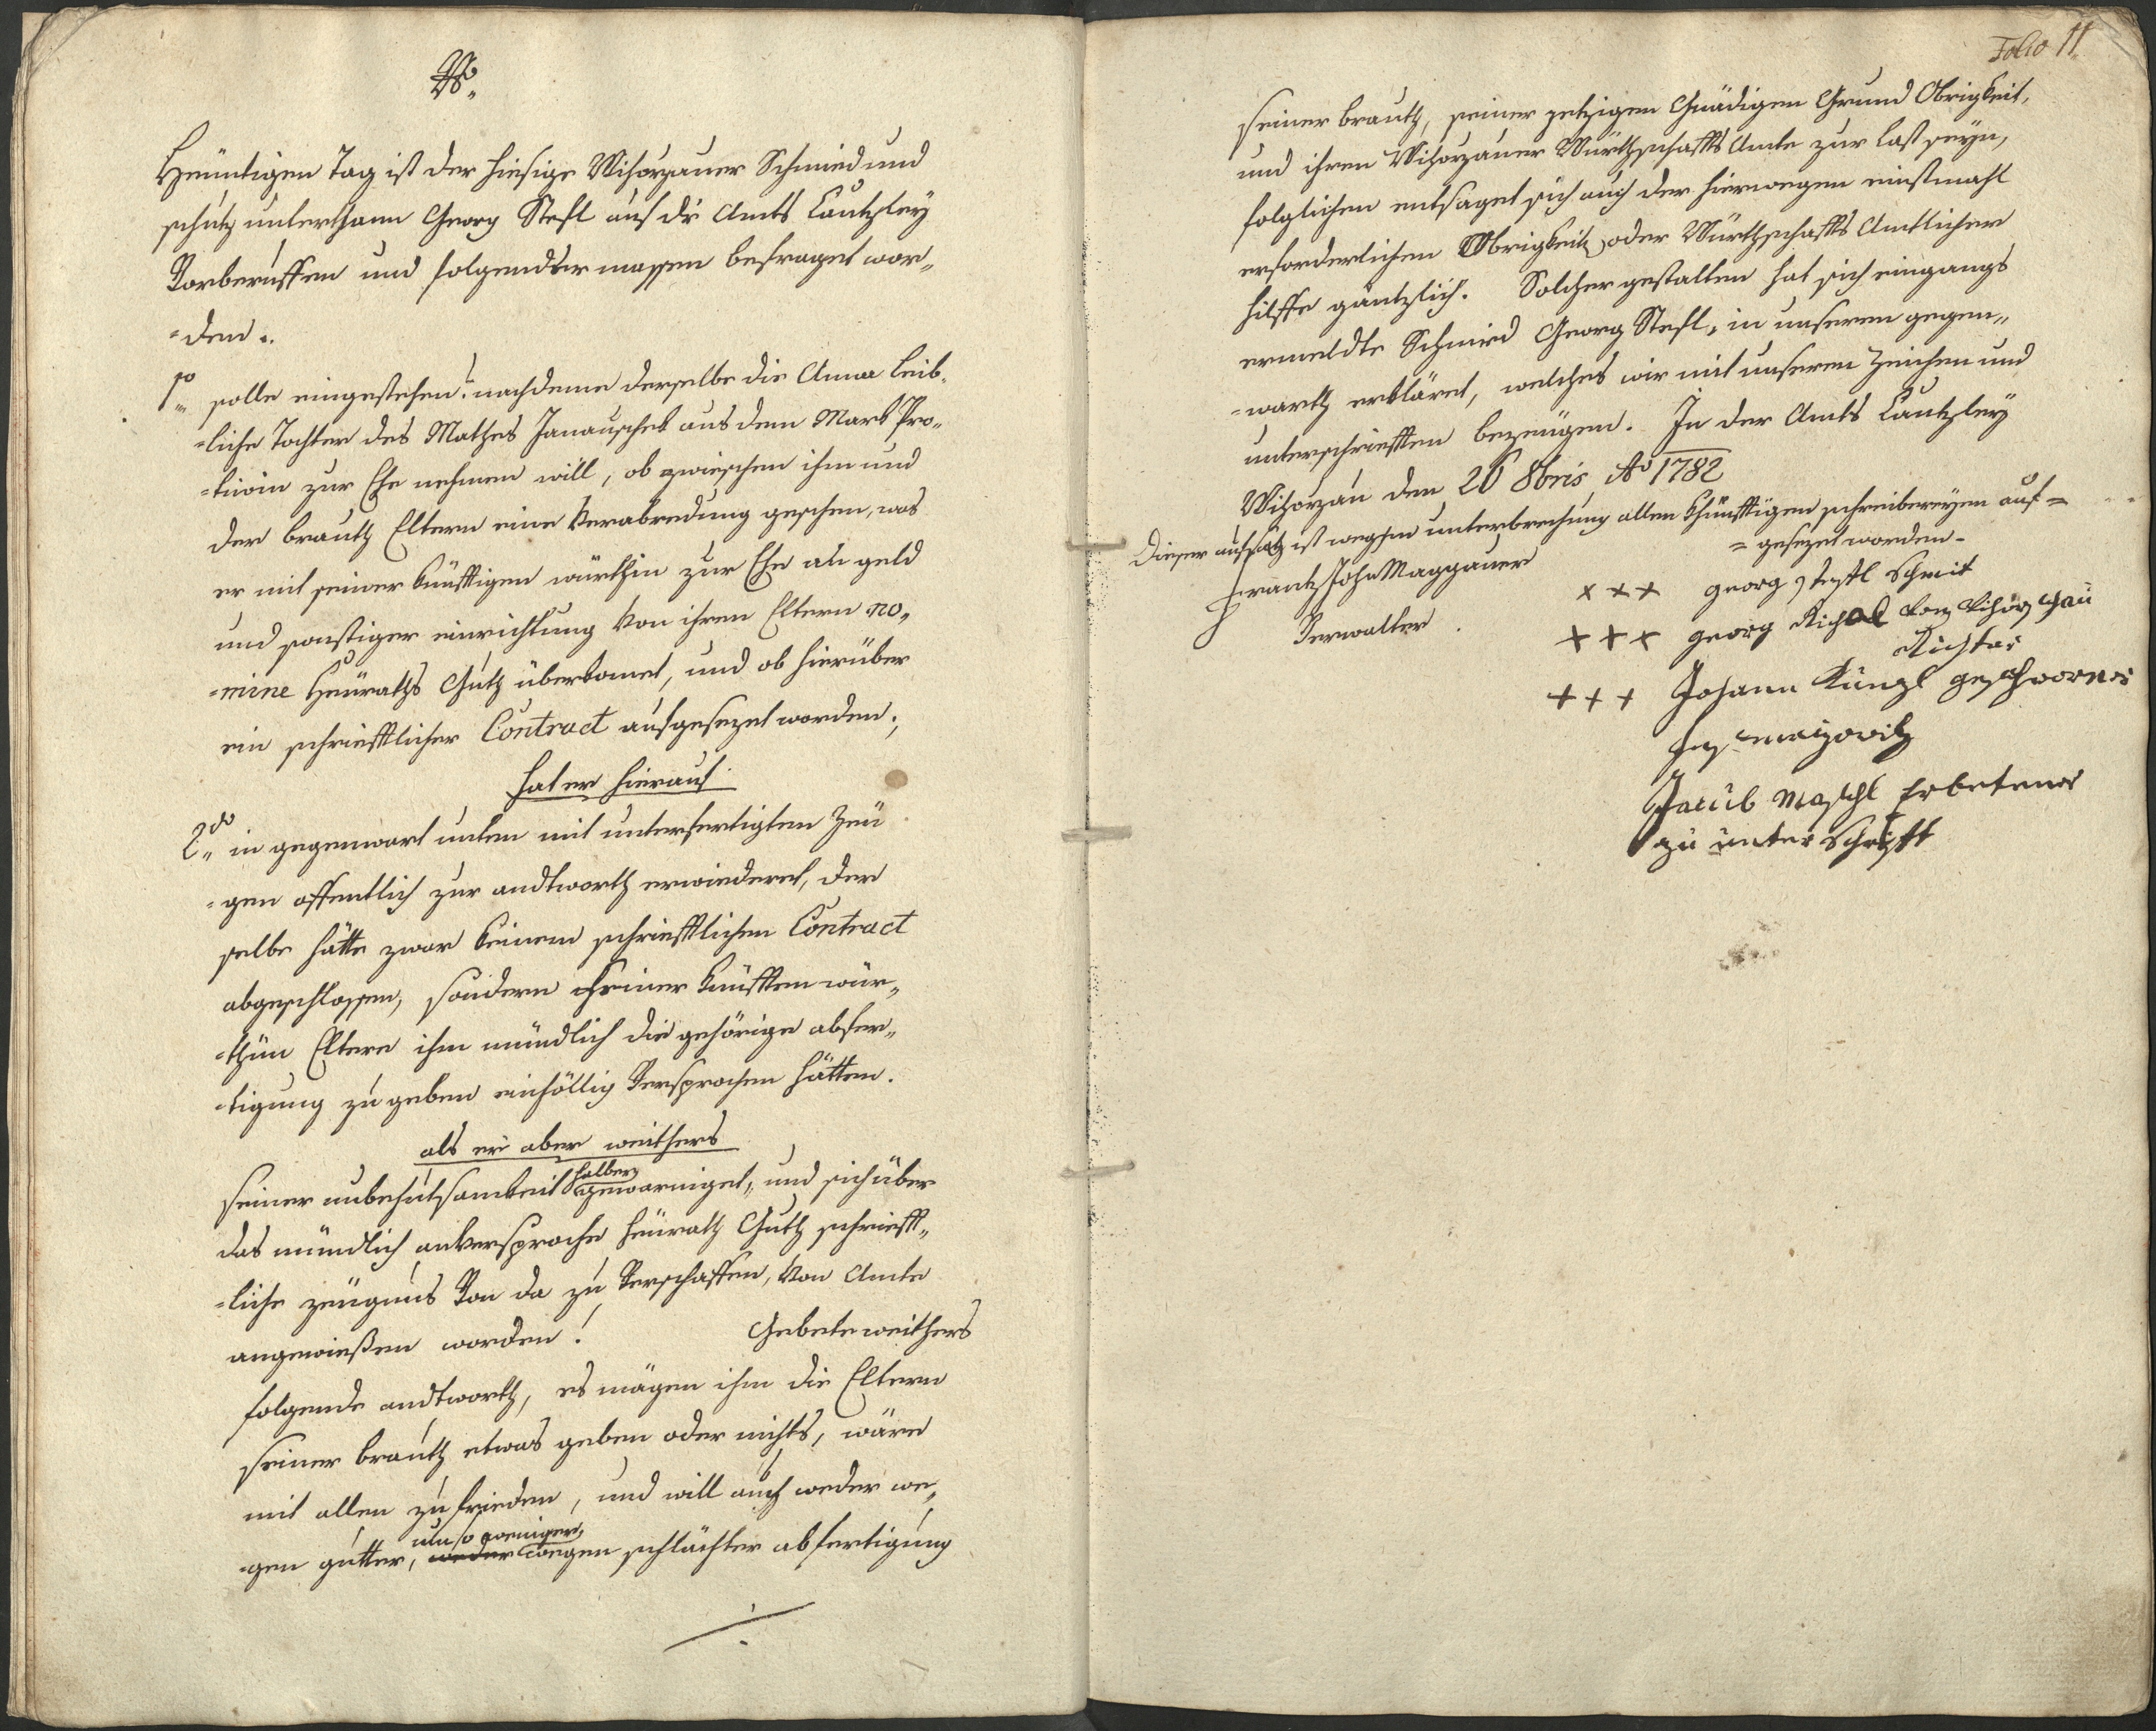 Heüntigen Tag ist der hiesige Wihorzauer Schmied und
schutz unterthann Georg Steffl auf dr̄ Amts Cantzley
Vorberuffen und folgender massen befraget wor„
=den.
1mo solle eingestehen? nachdeme derselbe die Anna leib„
=liche Tochter des Mathes Janauschek aus dem Mark Pro„
=tiwin zur Ehe nehmen will, ob zwieschen ihm und
der brauth Eltern eine Verabredung geschen, was
er mit seiner künfftigen würthin zur Ehe an geld
und sonstiger einrichtung Von ihren Eltern no„
=mine Heüraths Guth überkomet, und ob hierüber
ein schriefftlicher Contract aufgesezet worden;
hat er hierauf
2do in gegenwart unten mit unterfertigten Zeü
=gen offentlich zur andtworth erwiederet, der
selbe hätte zwar keinem schriefftlichen Contract
abgeschlossen, sondern seiner künfften wür„
=thin Eltern ihm mündlich die gehörige abfer„
=tigung zu geben einhöllig Versprochen hätten.
als er aber weithers
seiner unbehutsamkeit halber gewarniget, und sich über
das mündlich anversproche heürath Guth schrieff„
=liche zeügnus Von da zu Verschaffen, Von Amte
angewießen worden! Gebete weithers
folgende andtworth, es mögen ihm die Eltern
seiner brauth etwas geben oder nichts, wäre
mit allen zu frieden, und will auch weder we„
um so weniger
=gen gutter, weder wegen schlächter abfertigung
Folio 11
seiner brauth, seiner jetzigen Gnädigen Grund Obrigkeit,
und ihren Wihorzauer Würthschaffts Amte zur last seyn,
folglichen entsaget sich auch der hierwegen einstmahl
erforderlichen Obrigkeith oder Würthschaffts Amtlicher
hilffe gäntzlich. Solcher gestalten hat sich eingangs
ermeldte Schmied Georg Steffl, in unseren gegen„
=warth erkläret, welches wir mit unseren Zeichen und
unterschriefften bezeügen. In der Amts Cantzley
Wihorzau den 26 8bris Ao 1782
Dieser aufsatz ist wegen unterbrechung allen künfftigen schreibereyen auf=
=gesezet worden-
Frantz Joh Maggauer
Verwalter.
xxx georg stefl Schmit
xxx georg Richal Von Wihorz hau
Richter
+++ Johann Künzl geschworner
Jacub Maschl Erbetener
zu unter Schrifft